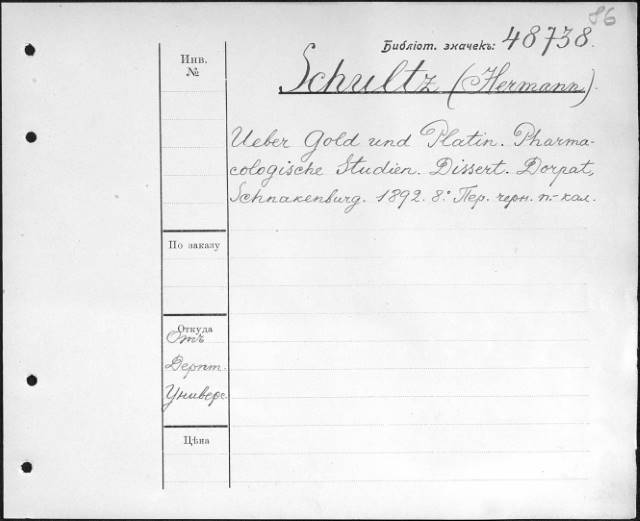 86
Библіот. значекъ: 48738.
Инв.
№
Schultz (Hermann).
Ueber Gold und Platin. Pharma-
cologische Studien. Dissert. Dorpat,
Schnakenburg. 1892. 8.° Пер. черн. п.-кал.
По заказу
Откуда
Отъ
Дерпт.
Универс.
Цѣна